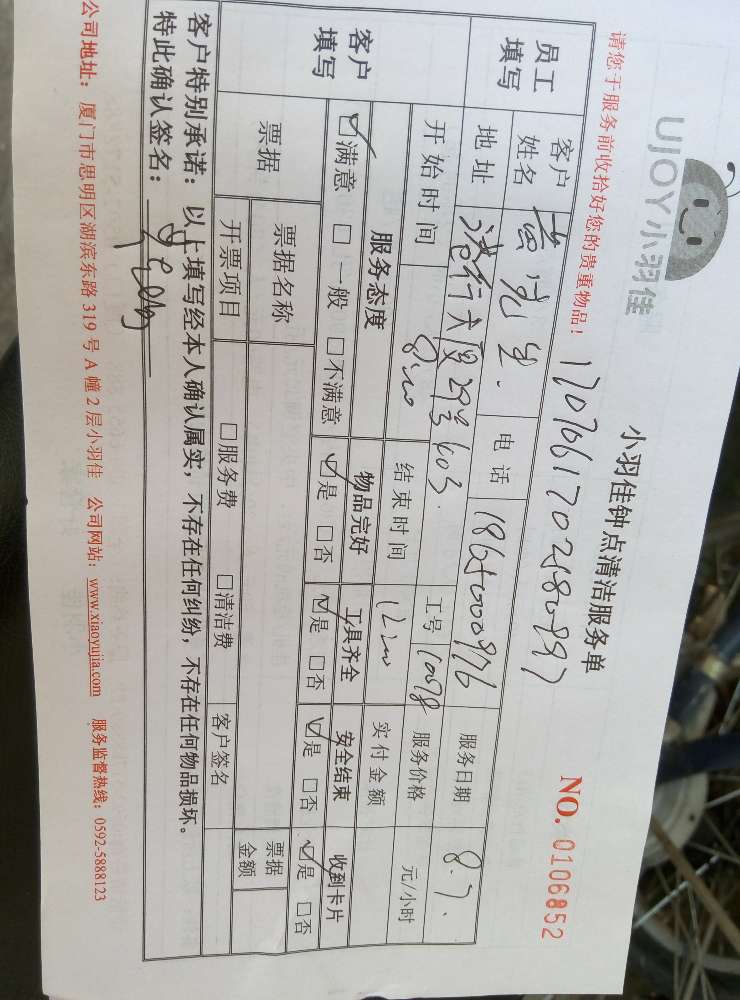 UJOY小羽佳
小羽佳钟点清洁服务单
NO. 0106852
请您于服务前收拾好您的贵重物品！
员工填写 客户姓名 黄先生. 电话 服务日期 8.7.
地址 港行大厦29号603. 工号 服务价格 元/小时
开始时间 8:00 结束时间 12:00 实付金额
客户填写 服务态度 物品完好 工具齐全 安全结束 收到卡片
☑满意 □一般 □不满意 ☑是 □否 ☑是 □否 ☑是 □否 ☑是 □否
票据 票据名称 票据金额
开票项目 □服务费 □清洁费 客户签名
客户特别承诺：以上填写经本人确认属实，不存在任何纠纷，不存在任何物品损坏。
特此确认签名：
公司地址：厦门市思明区湖滨东路 319 号 A 幢 2 层小羽佳 公司网站：www.xiaoyujia.com 服务监督热线：0592-5888123